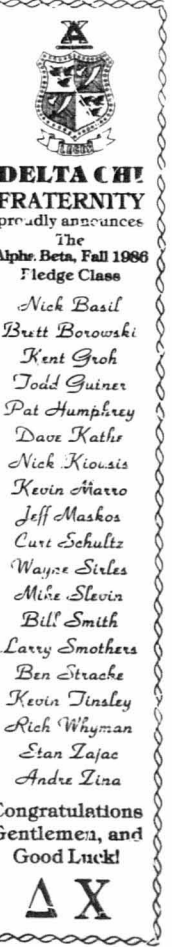 DELTA CHI
FRATERNITY
proudly announces
The
Alpha Beta, Fall 1986
Pledge Class
Nick Basil
Brett Borowski
Kent Groh
Todd Guiner
Pat Humphrey
Dave Kathr
Nick Kiousis
Kevin Marro
Jeff Maskos
Curt Schultz
Wayne Sirles
Mike Slevin
Bill Smith
Larry Smothers
Ben Stracke
Kevin Tinsley
Rich Whyman
Stan Zajac
Andre Zina
Congratulations
Gentlemen, and
Good Luck!
Δ Χ